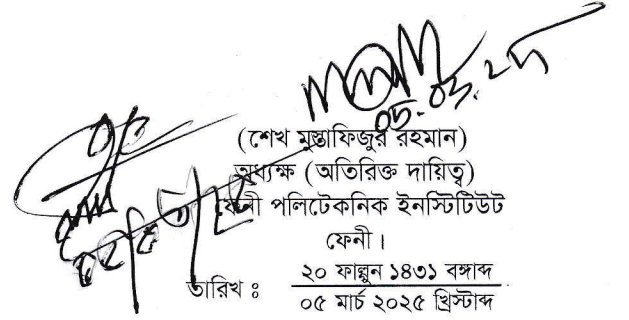 ০৫.০৩.২৫
(শেখ মুস্তাফিজুর রহমান)
অধ্যক্ষ (অতিরিক্ত দায়িত্ব)
ফেনী পলিটেকনিক ইনস্টিটিউট
ফেনী।
তারিখ ঃ ২০ ফাল্গুন ১৪৩১ বঙ্গাব্দ
০৫ মার্চ ২০২৫ খ্রিস্টাব্দ